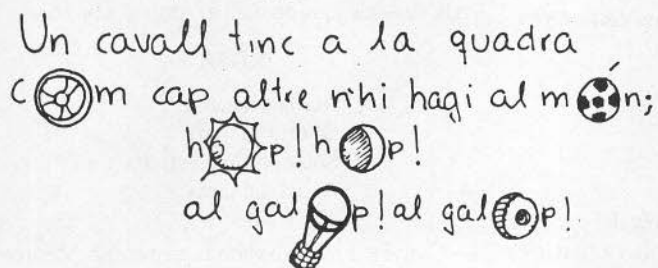 Un cavall tinc a la quadra
com cap altre n'hi hagi al món;
hop! hop!
al galop! al galop!